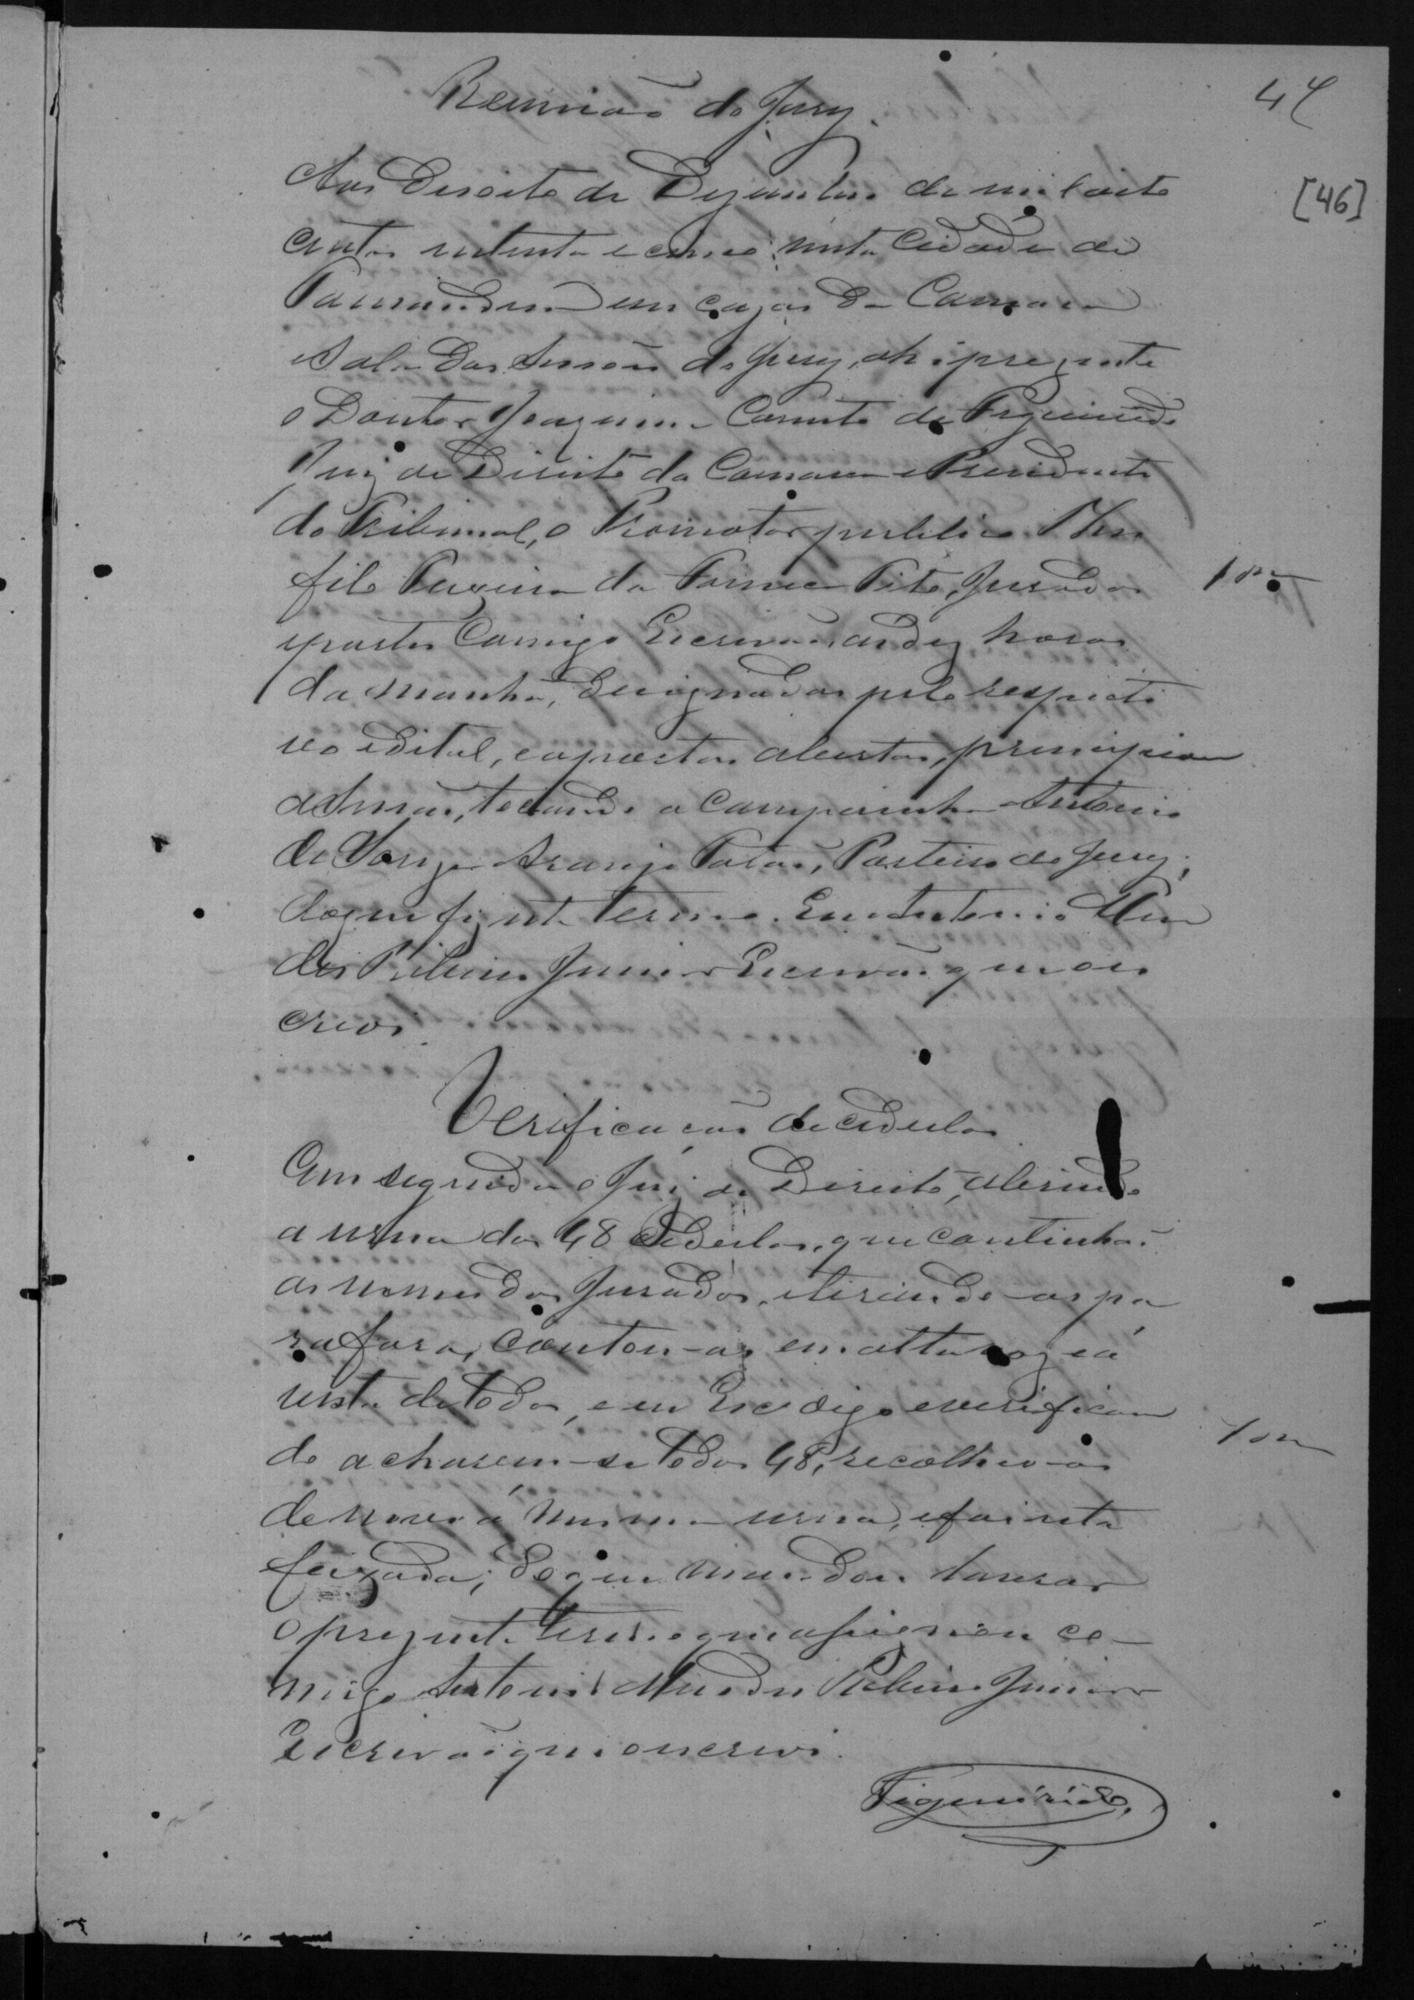 Reunião do Jury.
44
[46]
Aos desoito de Dezembro de mil oito
centos setenta e cinco, nesta Cidade de
em cazas da Camara
e Sala das Sessões do Jury, ahi prezente
o Doutor Joaquim Corrêa de
Juiz de Direito da Comarca e Presidente
do Tribunal, o Promotor publico Theo
filo Pereira da Pite, Jurados
e partes Comigo Escrivão, as dez horas
da manhã, designadas pelo respecti
vo edital, e aportas abertas, principiou
a Sessão, tocando a campainha Antonio
de Araujo Porteiro do Jury;
do que fiz este Termo. Eu Antonio Men
des Ribeiro Junior Escrivão que o es
crevi.
Verificação de cedulas
Em seguida o Juiz de Direito, abrindo
a urna das 48 Cedulas, que continhão
os nomes dos Jurados, e tirando-as pa
ra fora, contou-as em alta voz e á
vista de todos, e eu Esc digo e verifican
do acharem-se todas 48, recolheu-as
de novo á mesma urna, e foi esta
feixada; do que mandou lavrar
o prezente termo que co-
migo Antonio Mendes Ribeiro Junior
Escrivão que o escrevi.